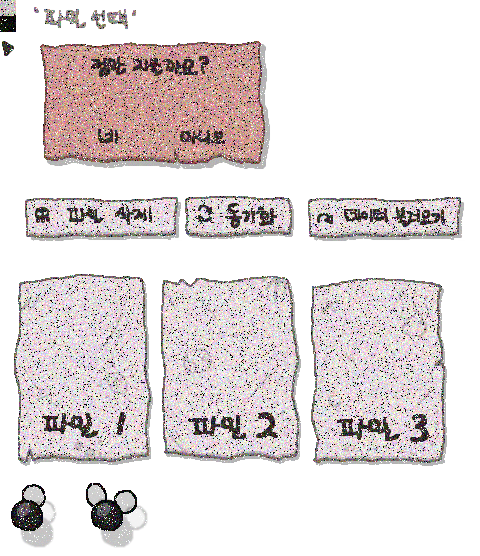 '파일 선택'
정말 지울까요?
네
아니오
파일 삭제
동기화
데이터 불러오기
파일 1
파일 2
파일 3